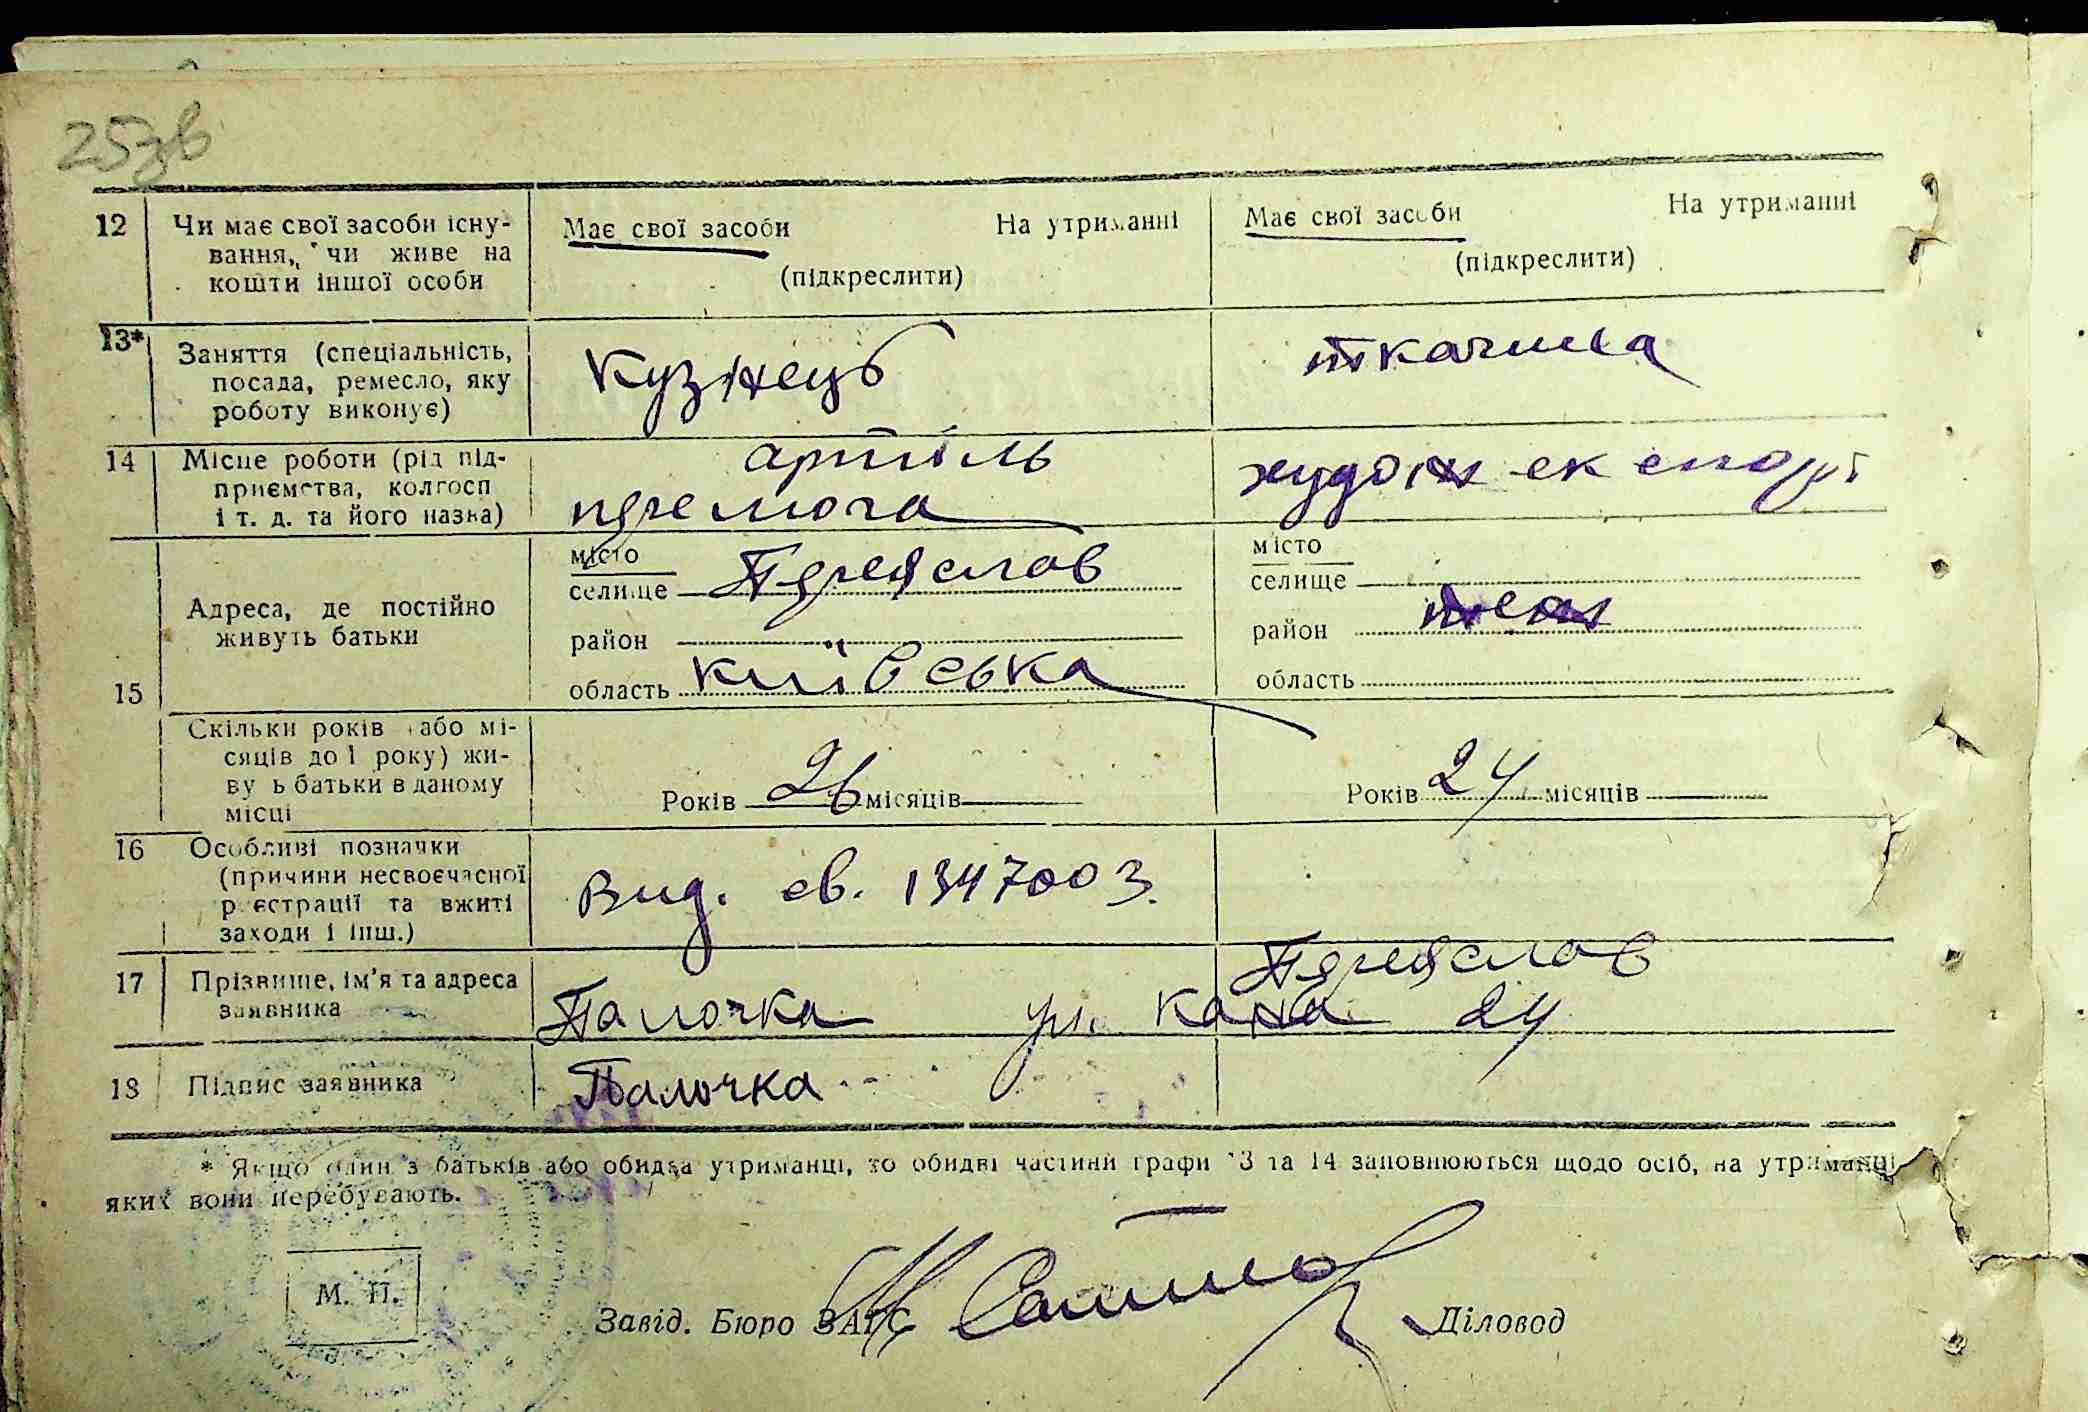 25зв
12 Чи має свої засоби існу-
вання, чи живе на
кошти іншої особи
Має свої засоби На утриманні
(підкреслити)
Має свої засоби На утриманні
(підкреслити)
13* Заняття (спеціальність,
посада, ремесло, яку
роботу виконує)
Кузнець
ткачиха
14 Місце роботи (рід під-
приємства, колгосп
і т. д. та його назва)
артіль
перемога
худож експорт
15 Адреса, де постійно
живуть батьки
місто
селище Переяслав
район
область київська
місто
селище
район
область
Скільки років або мі-
сяців до 1 року) жи-
ву ь батьки в даному
місці
Років 26 місяців
Років 24 місяців
16 Особливі позначки
(причини несвоєчасної
р єстрації та вжиті
заходи і інш.)
Вид. св. 1347003.
17 Прізвище, ім'я та адреса
заявника
Переяслав
Палочка ул. 24
18 Підпис заявника
Палочка
* Якщо один з батьків або обидва утриманці, то обидві частини графи 13 та 14 заповнюються щодо осіб, на утриманці
яких вони перебувають.
М. П.
Завід. Бюро ЗАГС Діловод